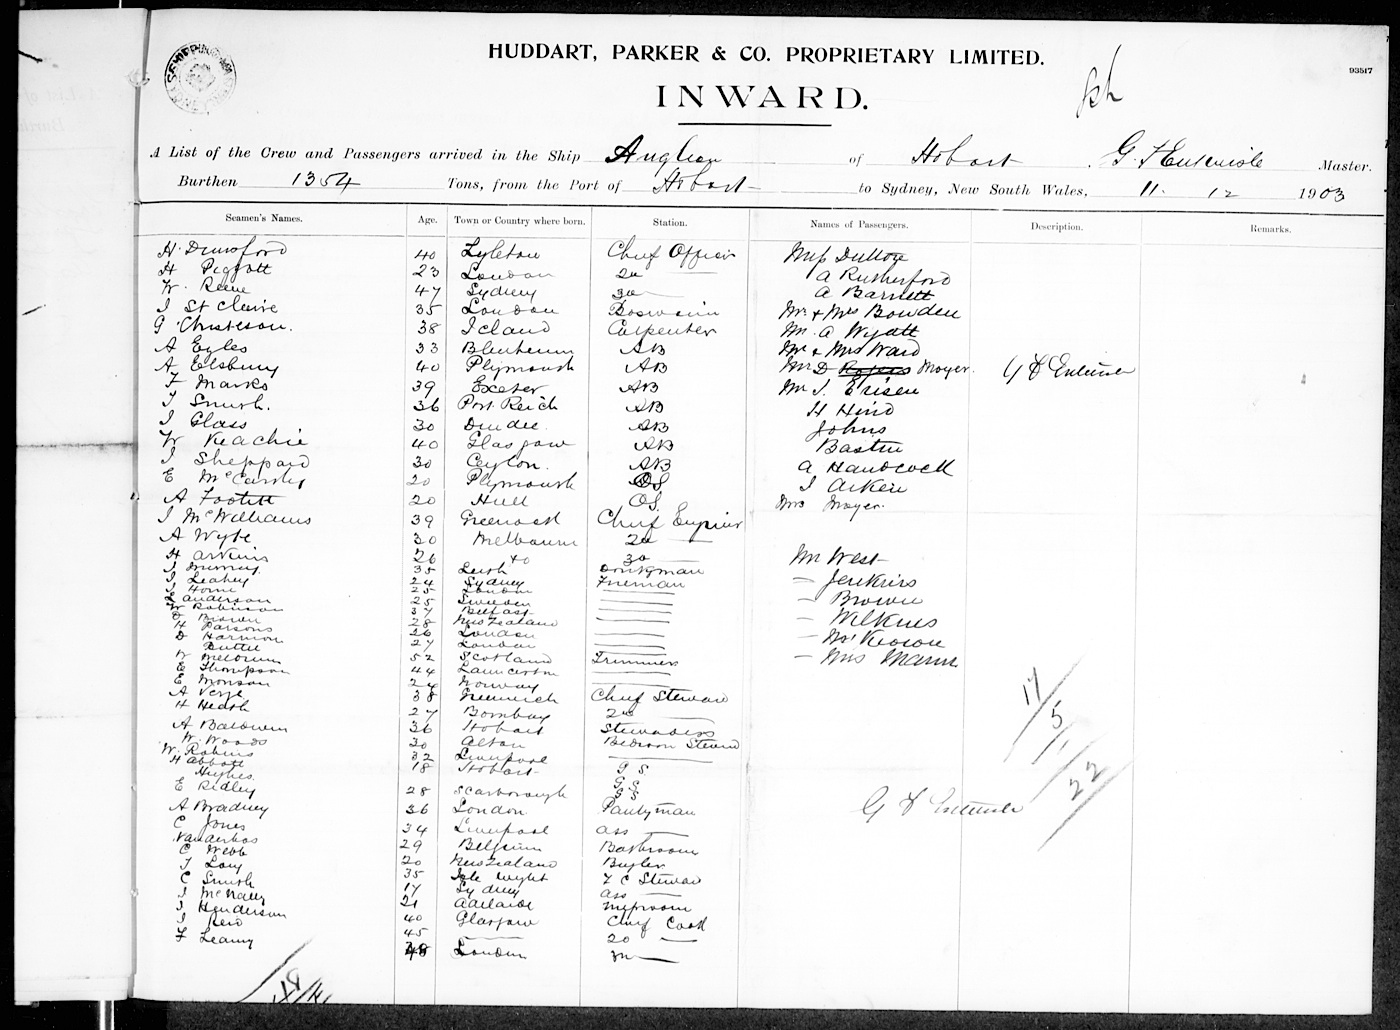 HUDDART, PARKER & CO. PROPRIETARY LIMITED.
93517
INWARD.
A List of the Crew and Passengers arrived in the Ship Anglian of Hobart, G. F Entwisle Master.
Burthen 1354 Tons, from the Port of Hobart to Sydney, New South Wales, 11. 12 1903
Seamen's Names. Age. Town or Country where born. Station. Names of Passengers. Description. Remarks.
H. Dunsford 40 Chief Officer Miss Dutton
H Piggott 23 London 2d A Rutherford
W. Reene 47 Sydney 3d A Barnett
J St Claire 35 London Boswain Mr. & Mrs Bowden
G Christeson. 38 Iceland Carpenter Mr. A Wyatt
A Eyles 33 Blenheim AB Mr & Mrs Ward
A Elsbury 40 Plymouth AB Mr D Rogers Moyer.
F Marks 39 Exeter AB Mr J. Erisen
J Smith. 36 Port Reich AB H Hind
J Glass 30 Dundee. AB Johns
W Keachie 40 Glasgow AB Bastin
J Sheppard 30 Ceylon. AB A Handcock
E McCarthy 20 Plymouth OS J Aiken
A Footitt 20 Hull OS. Mrs Moyer.
J McWilliams 39 Greenock Chief Engineer
A Wyte 30 Melbourne 2d
H Arkins 26 do 3d Mr West
J Murray 35 Leith Donkyman
J Leahey 24 Sydney Fireman — Jenkins
J Horne 25 London
anderson 25 Sweden — Brown
W Robinson 37 Belfast
D Brown 28 New Zealand — Wilkins
H Parsons 26 London
D Harmon 27 London — McKeown
Buttle 52 Scotland Trimmers — Mrs Mann
W Meldrum 44 Launceston
E Thompson 24 Norway
E Monson 38 Greenwich Chief Steward
A Verge 27 Bombay 2d
H Heath 36 Hobart Stewardess
A Baldwin 30 Alton Bedroom Steward
W. Woods 32 Liverpool
W. Robins 18 Hobart G S
H Abbott
Hughes G S
E Ridley 28 Scarborough G S
A Bradney 36 London Pantyman
C Jones 34 Liverpool ass
Vanderhas 29 Belgium Bathroom
C Webb 20 New Zealand Bugler
T Long 35 Isle Wight F C Steward
C Smith 17 Sydney ass
J McNally 21 Adelaide Messroom
J Henderson 40 Glasgow Chief Cook
J Reid 45 2d
F Leamy 48 London 3rd
17
5
22